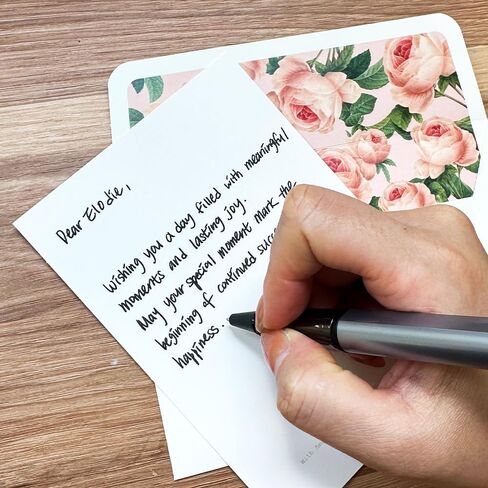 Dear Elodie,
Wishing you a day filled with meaningful
moments and lasting joy.
May your special moment mark the
beginning of continued
happiness.
With